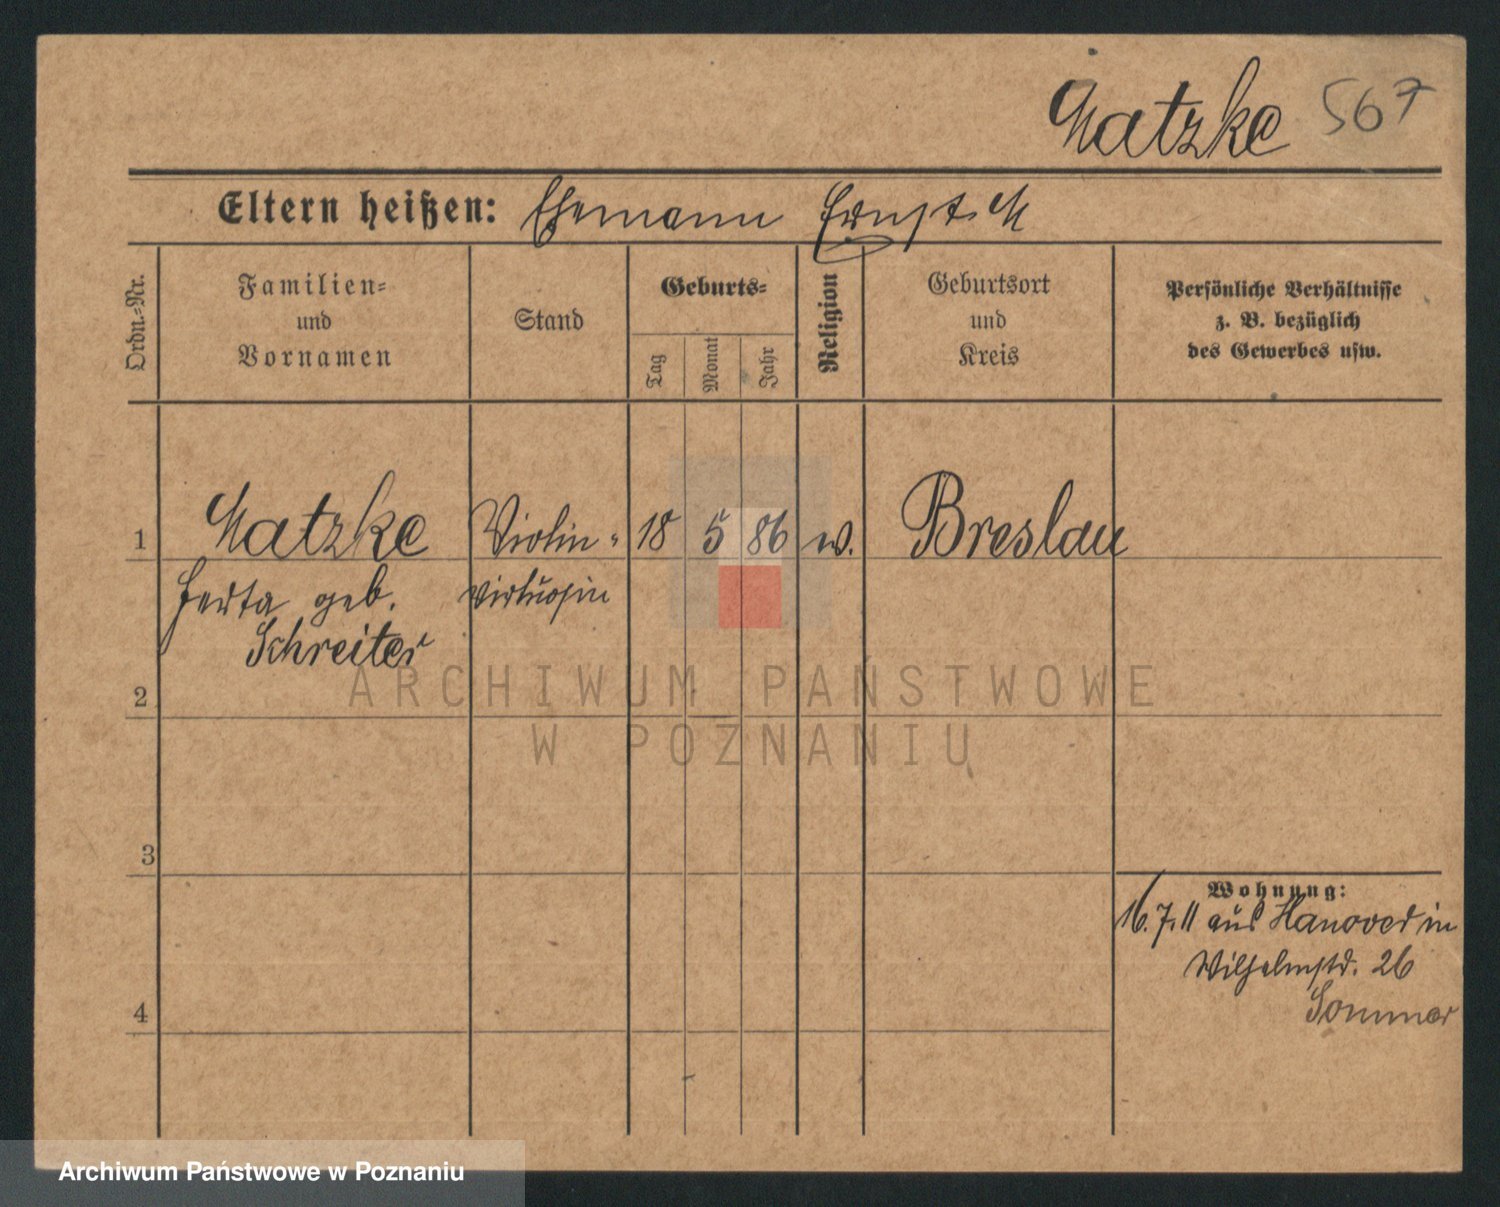 Matzke 567
Eltern heißen: Ehemann Ernst M
Ordn.-Nr.
Familien-
und
Vornamen
Stand
Geburts-
Tag
Monat
Jahr
Religion
Geburtsort
und
Kreis
Persönliche Verhältnisse
z. B. bezüglich
des Gewerbes usw.
1 Matzke Violin- 18 5 86 w. Breslau
geb. virtuosin
Schreiter
2
3
4
Wohnung:
16.7.11 aus Hanover in
Wilhelmstr. 26
Sommer
ARCHIWUM PAŃSTWOWE
W POZNANIU
Archiwum Państwowe w Poznaniu